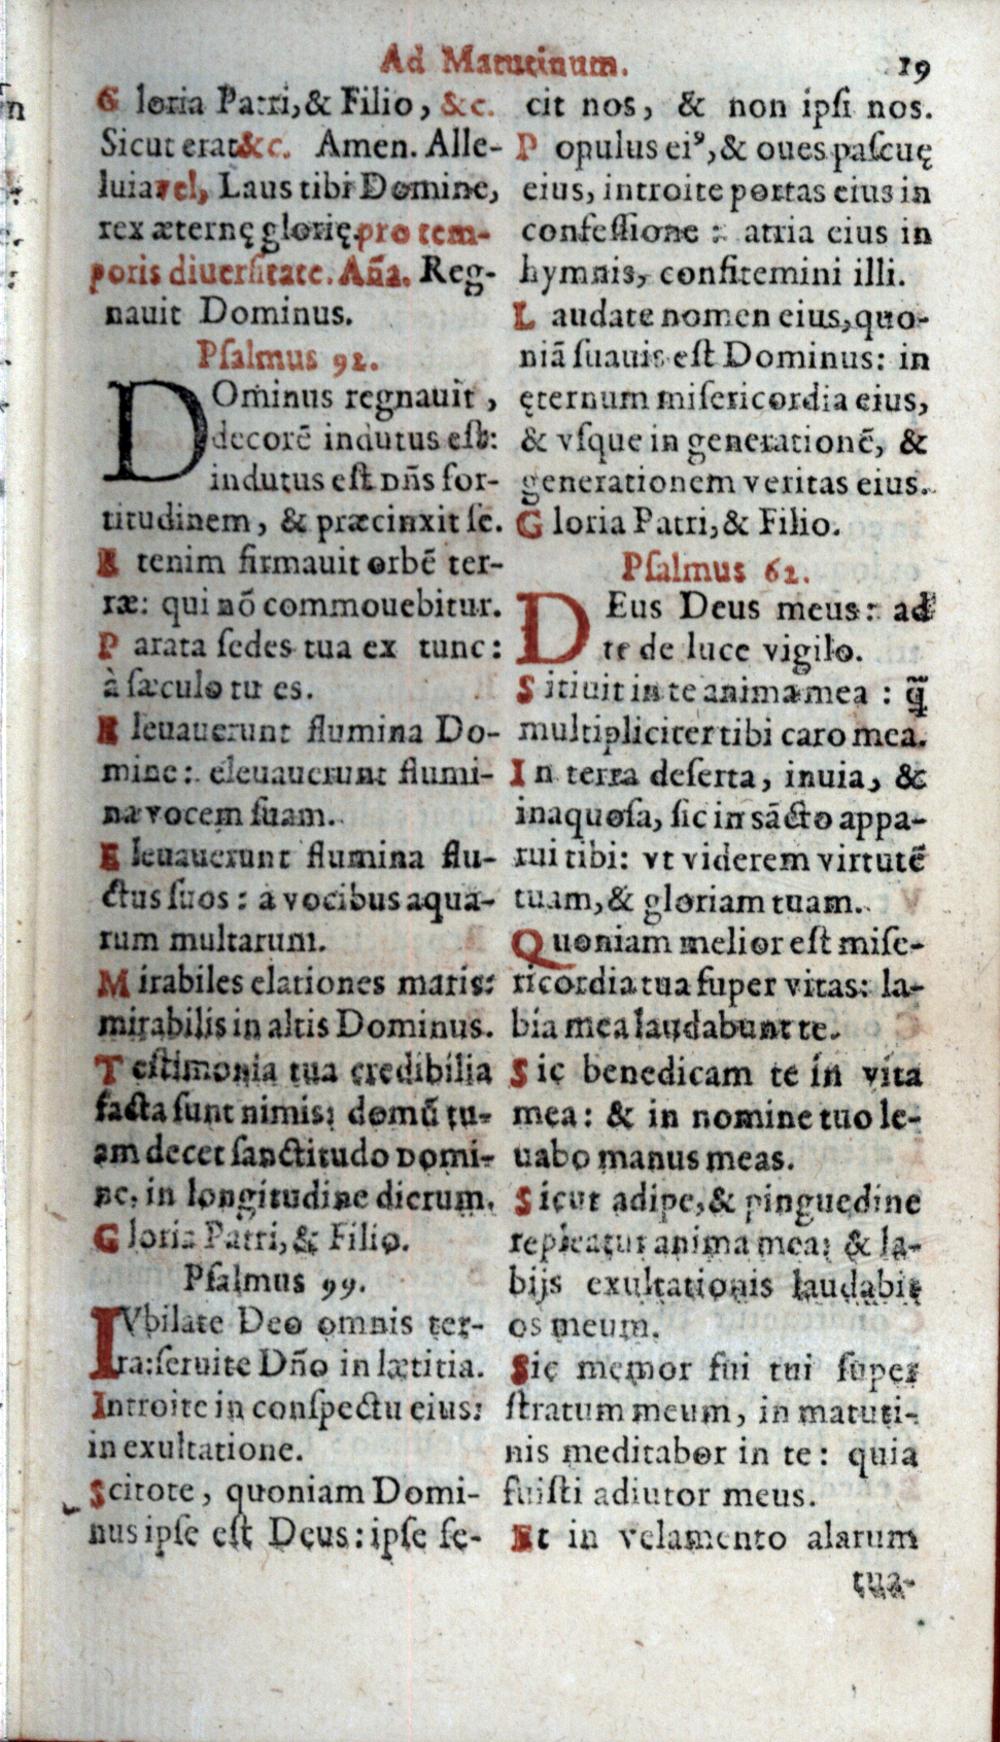 Ad Matutinum. 19
G loria Patri,& Filio, &c.
Sicut erat&c. Amen. Alle-
luia vel, Laus tibi Domine,
rex æternę glorię.pro tem-
poris diuersitate. Añа. Reg-
nauit Dominus.
Psalmus 92.
DOminus regnauit,
decorē indutus est:
indutus est Dñs for-
titudinem, & præcinxit se.
E tenim firmauit orbē ter-
ræ: qui nō commouebitur.
P arata sedes tua ex tunc:
à sæculo tu es.
E leuauerunt flumina Do-
mine: eleuauerunt flumi-
na vocem suam.
E leuauerunt flumina flu-
ctus suos: a vocibus aqua-
rum multarum.
M irabiles elationes maris:
mirabilis in altis Dominus.
T estimonia tua credibilia
facta sunt nimis: domū tu-
am decet sanctitudo Domi-
ne, in longitudine dierum.
G loria Patri,& Filio.
Psalmus 99.
IVbilate Deo omnis ter-
ra:seruite Dño in lætitia.
Introite in conspectu eius:
in exultatione.
Scitote, quoniam Domi-
nus ipse est Deus: ipse fe-
cit nos, & non ipsi nos.
P opulus eiꝰ,& oues pascuę
eius, introite portas eius in
confessione: atria eius in
hymnis, confitemini illi.
L audate nomen eius,quo-
niā suauis est Dominus: in
ęternum misericordia eius,
& vsque in generationē, &
generationem veritas eius.
G loria Patri,& Filio.
Psalmus 62.
DEus Deus meus: ad
te de luce vigilo.
S itiuit in te anima mea: q̃
multipliciter tibi caro mea.
In terra deserta, inuia, &
inaquosa, sic in sācto appa-
rui tibi: vt viderem virtutē
tuam,& gloriam tuam.
Q uoniam melior est mise-
ricordia tua super vitas: la-
bia mea laudabunt te.
S ic benedicam te in vita
mea: & in nomine tuo le-
uabo manus meas.
S icut adipe,& pinguedine
repleatur anima mea: & la-
bijs exultationis laudabit
os meum.
Sic memor fui tui super
stratum meum, in matuti-
nis meditabor in te: quia
fuisti adiutor meus.
Et in velamento alarum
tua-